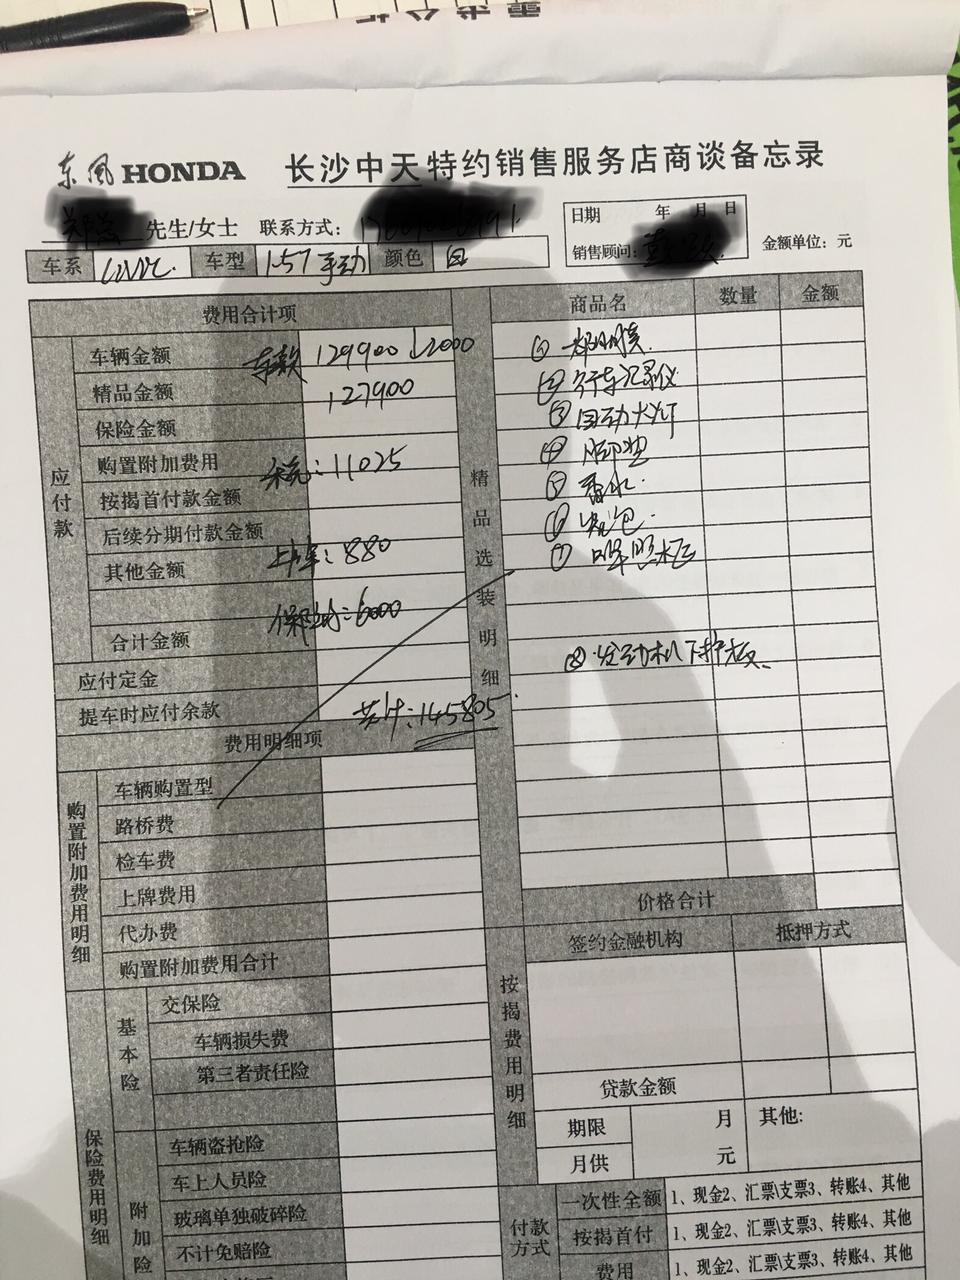 东风 HONDA 长沙中天特约销售服务店商谈备忘录
先生/女士 联系方式:
日期 年 月 日
销售顾问:
金额单位: 元
车系 civic 车型 1.5T 手动 颜色 白
费用合计项
应付款
车辆金额 车款 129900 ↓2000
精品金额 127900
保险金额
购置附加费用 : 11025
按揭首付款金额
后续分期付款金额
其他金额 上牌: 880
合计金额 保险: 6000
应付定金
提车时应付余款 共计: 145805
费用明细项
购置附加费用明细
车辆购置型
路桥费
检车费
上牌费用
代办费
购置附加费用合计
保险费用明细
基本险
交保险
车辆损失费
第三者责任险
附加险
车辆盗抢险
车上人员险
玻璃单独破碎险
不计免赔险
精品选装明细
商品名 数量 金额
①
② 行车记录仪
③ 自动大灯
④ 脚垫
⑤ 香水
⑥
⑦
⑧ 发动机下护板
价格合计
按揭费用明细
签约金融机构 抵押方式
贷款金额
期限 月 其他:
月供 元
付款方式
一次性全额 1、现金2、汇票\支票3、转账4、其他
按揭首付 1、现金2、汇票\支票3、转账4、其他
费用 1、现金2、汇票\支票3、转账4、其他